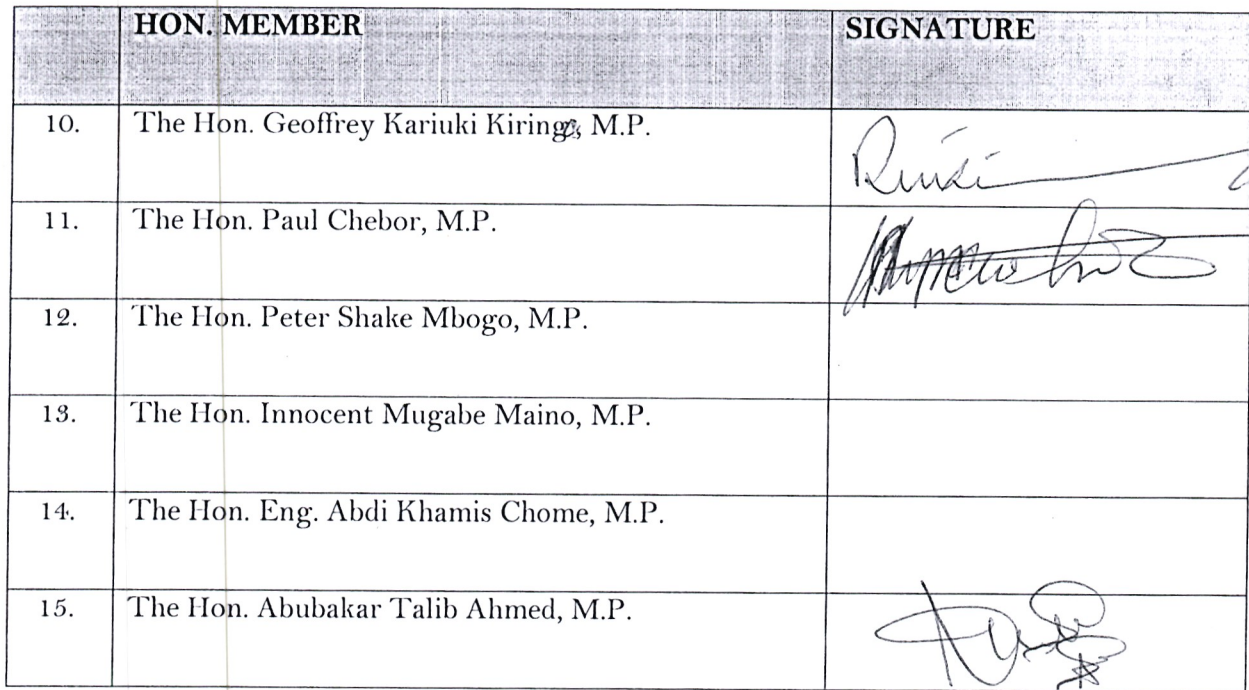 HON. MEMBER SIGNATURE
10. The Hon. Geoffrey Kariuki Kiringe, M.P.
11. The Hon. Paul Chebor, M.P.
12. The Hon. Peter Shake Mbogo, M.P.
13. The Hon. Innocent Mugabe Maino, M.P.
14. The Hon. Eng. Abdi Khamis Chome, M.P.
15. The Hon. Abubakar Talib Ahmed, M.P.